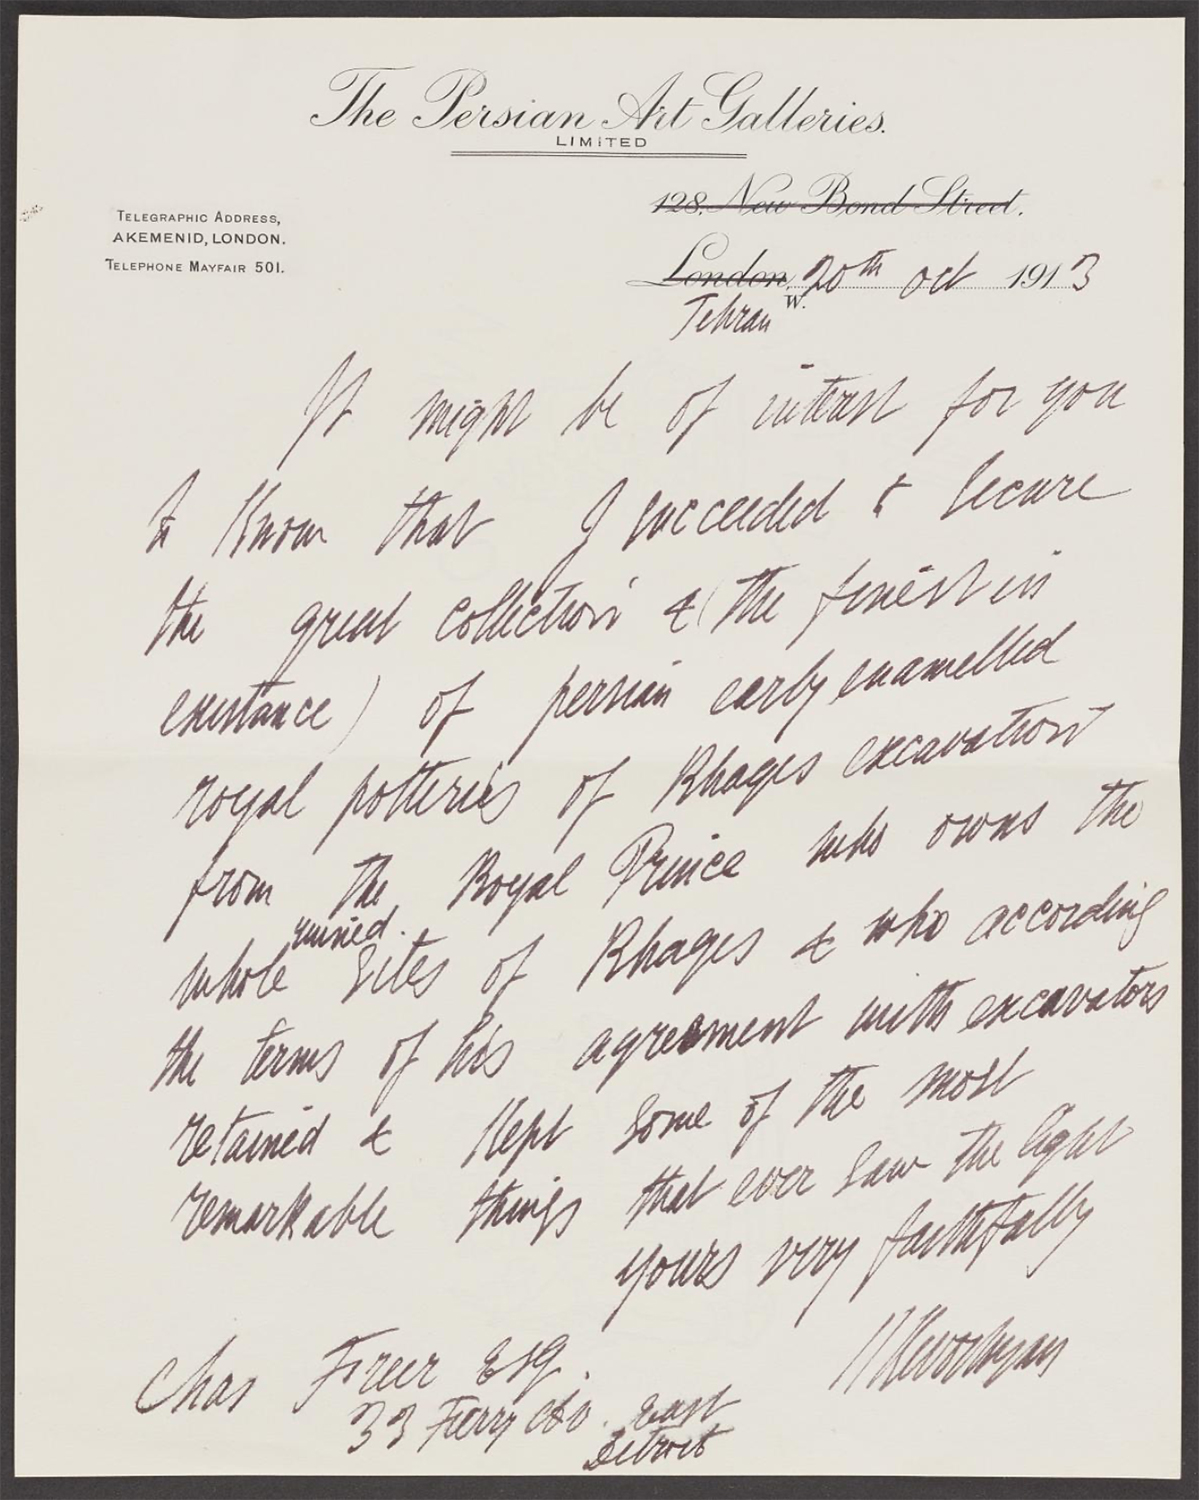 The Persian Art Galleries.
LIMITED
128, New Bond Street.
TELEGRAPHIC ADDRESS,
AKEMENID, LONDON.
TELEPHONE MAYFAIR 501.
London, W. 20th oct 1913
Tehran
It might be of interest for you
to know that I succeeded to secure
the great collection & (the finest in
existance) of persian early enamelled
royal potteries of Rhages excavation
from the Royal Prince who owns the
whole ruined sites of Rhages & who according
the terms of his agreement with excavators
retained & kept some of the most
remarkable things that ever saw the light
yours very faithfully
H Kevorkyan
Chas Freer Esq.
33 Ferry Av. East
Detroit